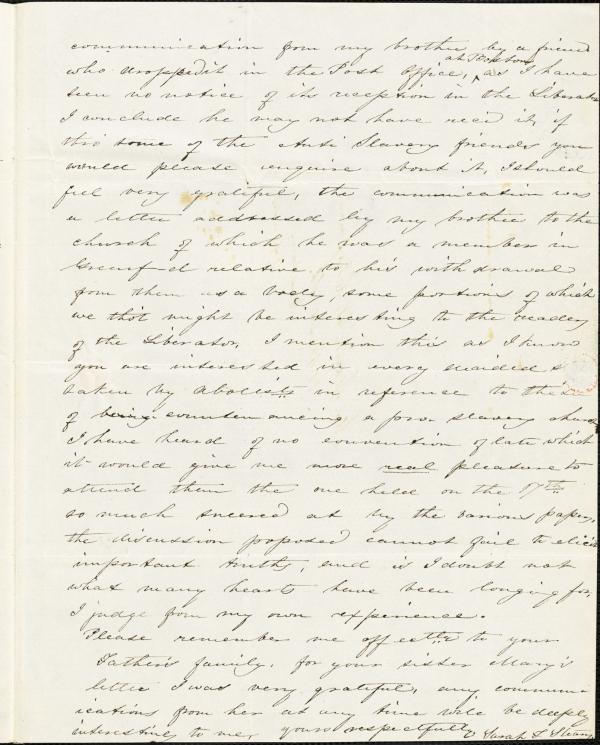 communication from my brother by a friend
at Boston
who dropped it in the Post Office, as I have
seen no notice of its reception in the Liberator
I conclude he may not have rec'd it, if
thro some of the Anti Slavery friends you
would please enquire about it, I should
feel very grateful, the communication was
a letter addressed by my brother to the
church of which he was a member in
Greenf-d relative to his withdrawal
from them as a body, some portions of which
we thot might be interesting to the readers
of the Liberator, I mention this as I know
you are interested in every decided s
taken by Abolists in reference to the
of being countenancing a pro slavery church
I have heard of no convention of late which
it would give me more real pleasure to
attend than the one held on the 17th
so much sneered at by the various papers,
the discussion proposed cannot fail to elicit
important truths, and is I doubt not
what many hearts have been longing for,
I judge from my own experience.
Please remember me affectly to your
Father's family. for your sister Mary's
letter I was very grateful, any commun
ications from her at any time will be deeply
interesting to me, yours respectfully Sarah